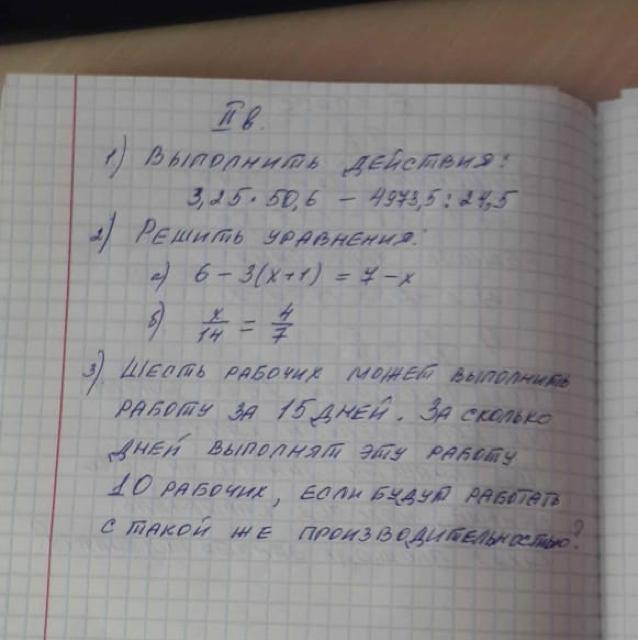 II в.
1) Выполнить действия:
3,25 · 50,6 - 4973,5 : 24,5
2) Решить уравнения:
а) 6 - 3(x+1) = 7 - x
б) x/14 = 4/7
3) Шесть рабочих может выполнить
работу за 15 дней. За сколько
дней выполнят эту работу
10 рабочих, если будут работать
с такой же производительностью?